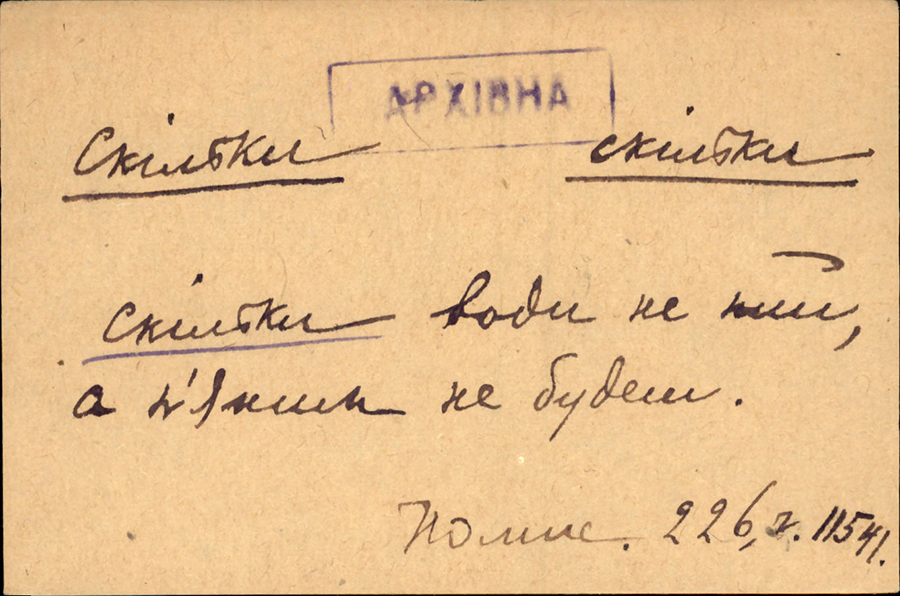 АРХІВНА
Скільки скільки
Скільки води не пий,
а п'яним не будеш.
Номис. 226, ч. 11541.